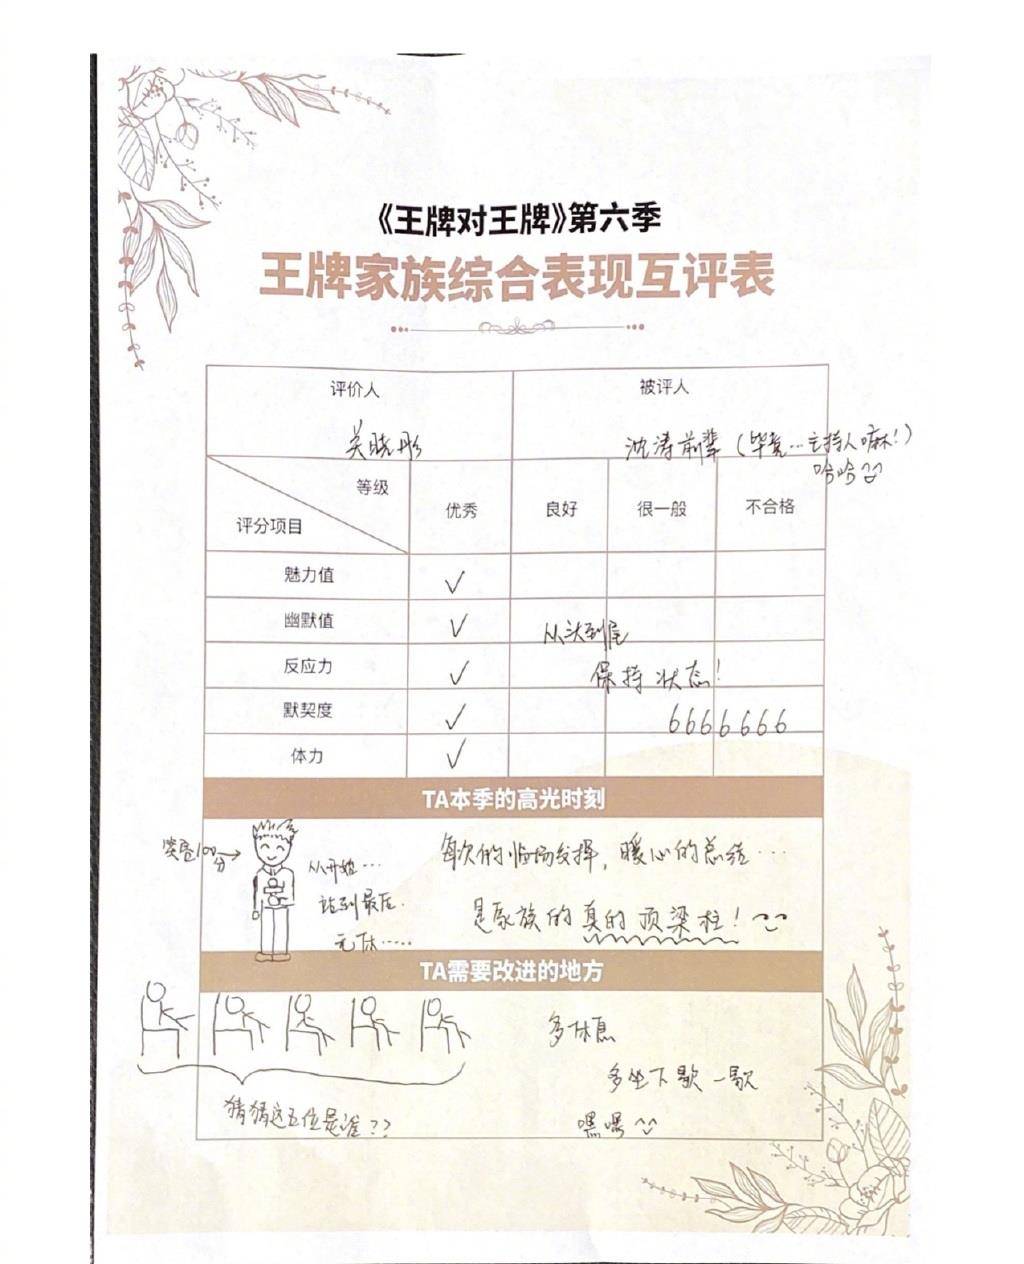 《王牌对王牌》第六季
王牌家族综合表现互评表
评价人
被评人
关晓彤
沈涛前辈（毕竟…主持人嘛！）
哈哈
等级
评分项目
优秀
良好
很一般
不合格
魅力值
✓
幽默值
✓
从头到尾
反应力
✓
保持状态！
默契度
✓
6666666
体力
✓
TA本季的高光时刻
笑容100分→
从开始…
站到最后.
无休……
每次的临场发挥，暖心的总结…
是家族的真的顶梁柱！
TA需要改进的地方
猜猜这五位是谁？？
多休息
多坐下歇一歇
嘿嘿